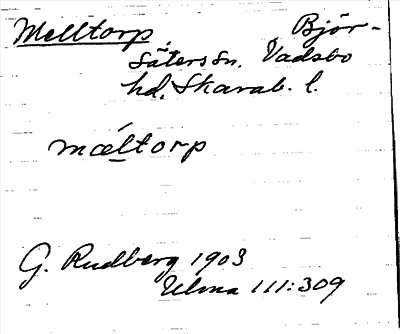 Melltorp. Björ-
säters sn. Vadsbo
hd. Skarab. l.
mǽltorp
G. Rudberg 1903
Ulma 111:309